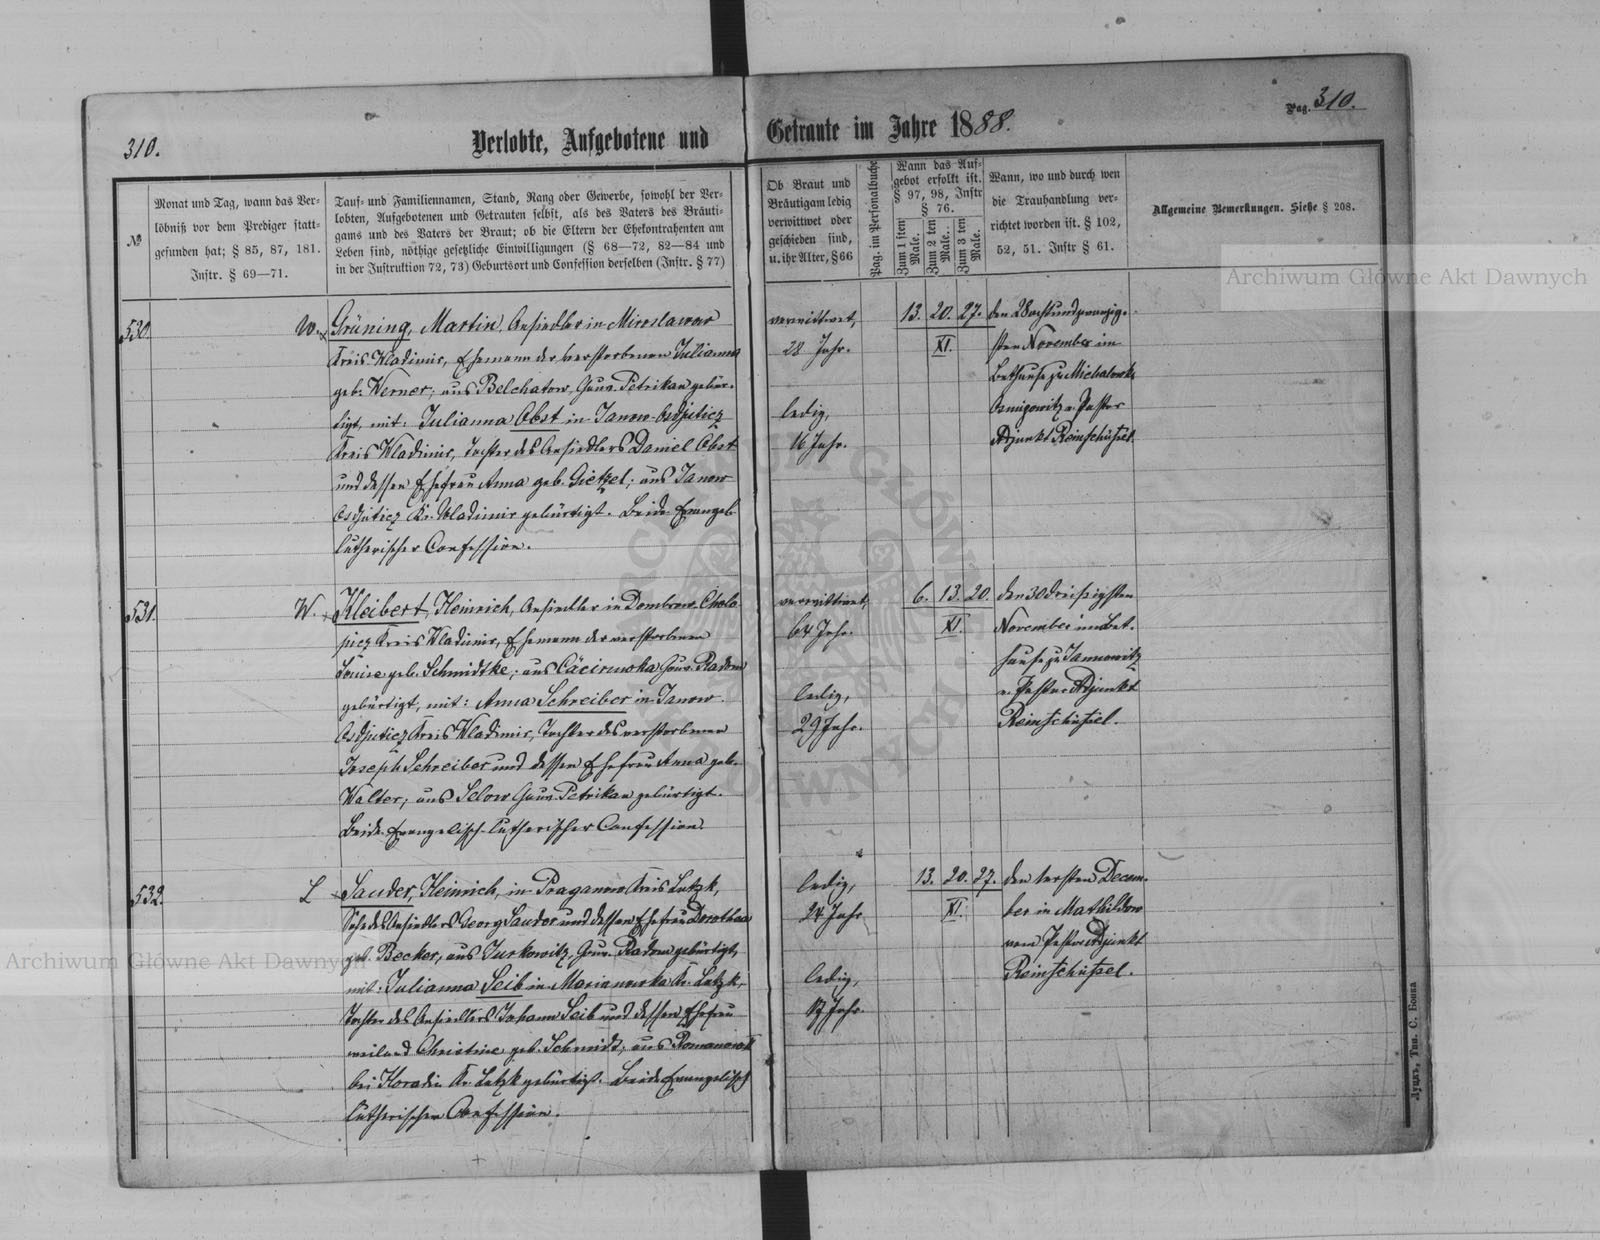 310.
Verlobte, Aufgebotene und
Getraute im Jahre 1888.
Pag. 310.
№
Monat und Tag, wann das Ver-
löbniß vor dem Prediger statt-
gefunden hat; § 85, 87, 181.
Instr. § 69—71.
Tauf- und Familiennamen, Stand, Rang oder Gewerbe, sowohl der Ver-
lobten, Aufgebotenen und Getrauten selbst, als des Vaters des Bräuti-
gams und des Vaters der Braut; ob die Eltern der Ehekontrahenten am
Leben sind, nöthige gesetzliche Einwilligungen (§ 68—72, 82—84 und
in der Instruktion 72, 73) Geburtsort und Confession derselben (Instr. § 77)
Ob Braut und
Bräutigam ledig
verwittwet oder
geschieden sind,
u. ihr Alter, §66
Pag. im Personalbuche
Wann das Auf-
gebot erfolkt ist.
§ 97, 98, Instr
§ 76.
Zum 1 sten
Male.
Zum 2 ten
Male.
Zum 3 ten
Male.
Wann, wo und durch wen
die Trauhandlung ver-
richtet worden ist. § 102,
52, 51. Instr § 61.
Allgemeine Bemerkungen. Siehe § 208.
530.
W.
Grüning, Martin, Ansiedler in Miroslawow
Kreis Wladimir, Ehemann der verstorbenen Julianna
geb. Werner, aus Belchatow, Gouv. Petrikau gebür-
tigt, mit: Julianna Obst in Janow-Osdjuticz
Kreis Wladimir, Tochter des Ansiedlers Daniel Obst
und dessen Ehefrau Anna geb. Gietzel, aus Janow-
Osdjuticz Kr. Wladimir gebürtigt. Beide Evangel.
lutherischer Confession.
verwittwet,
28 Jahr.
ledig,
16 Jahr.
13. 20. 27.
XI.
den 28 achtundzwanzig-
sten November im
Bethause zu Michalowka
v. Pastor
Adjunkt Reinschüssel.
531.
W.
Kleibert, Heinrich, Ansiedler in Dombrow-Cholo-
piecz Kreis Wladimir, Ehemann der verstorbenen
Louise geb. Schmidtke, aus Gouv. Radom
gebürtigt, mit: Anna Schreiber in Janow-
Osdjuticz Kreis Wladimir, Tochter des verstorbenen
Joseph Schreiber und dessen Ehefrau Anna geb.
Walter, aus Selow Gouv. Petrikau gebürtigt.
Beide Evangelisch-lutherischer Confession.
verwittwet,
64 Jahr.
ledig,
29 Jahr.
6. 13. 20.
XI.
den 30 dreißigsten
November im Bet-
hause zu Jannowitz
v. Pastor Adjunkt
Reinschüssel.
532.
L
Sauder, Heinrich, in Praganow Kreis Lutzk,
Sohn des Ansiedlers Georg Sauder und dessen Ehefrau Dorothea
geb. Becker, aus Jurkowitz, Gouv. Radom gebürtigt,
mit: Julianna Seib in Marianowka Kr. Lutzk,
Tochter des Ansiedlers Johann Seib und dessen Ehefrau
weiland Christine geb. Schmidt, aus Romanowka
bei Horodin Kr. Lutzk gebürtigt. Beide Evangelisch
lutherischer Confession.
ledig,
24 Jahr
ledig,
Jahr.
13. 20. 27.
XI.
den ersten Decem-
ber in Mathildow
vom Pastor Adjunkt
Reinschüssel.
Луцкъ, Тип. С. Бонка
Archiwum Główne Akt Dawnych
Archiwum Główne Akt Dawnych